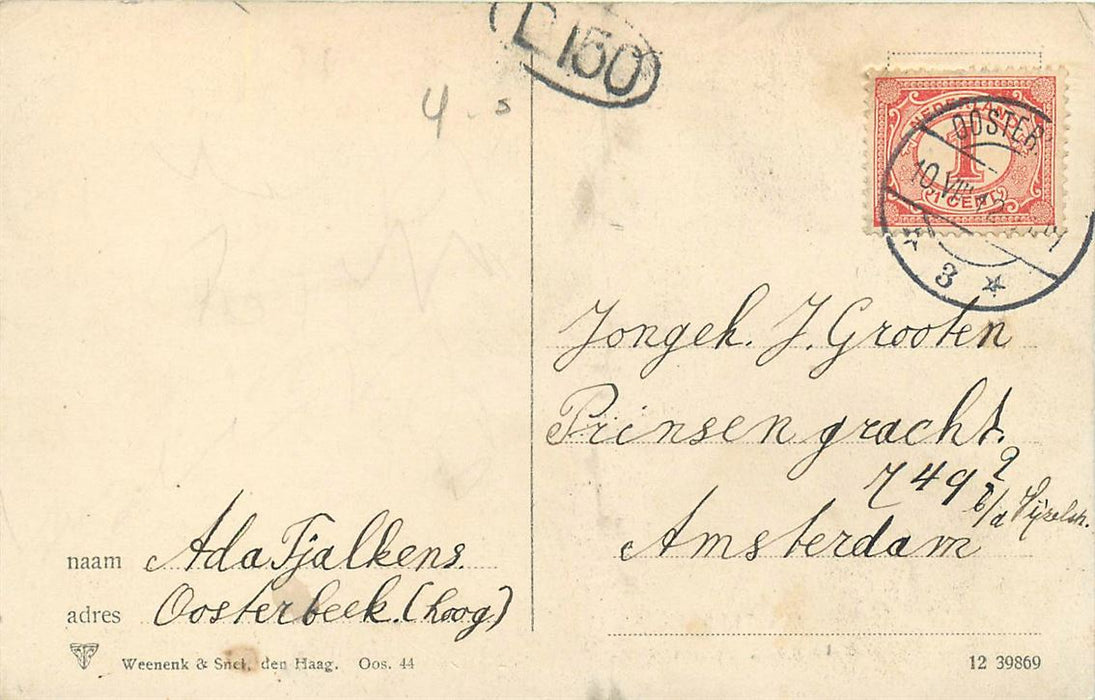 L 150
4 - s
NEDERLAND
1
1 CENT
OOSTER
10 VIII 12
3
Jongeh. J. Grooten
Prinsengracht.
749
b/d
Amsterdam
naam Ada Tjalkens.
adres Oosterbeek. (hoog)
Weenenk & Snel, den Haag. Oos. 44
12 39869